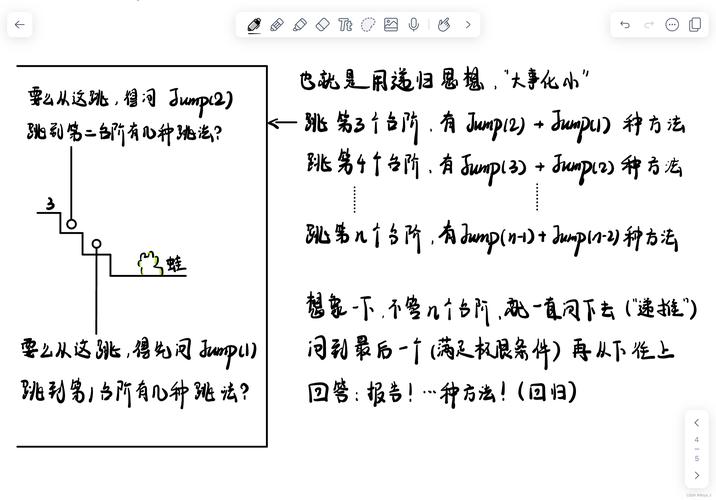 要么从这跳,得问 Jump(2)
跳到第二台阶有几种跳法?
3
蛙
要么从这跳,得先问 Jump(1)
跳到第1台阶有几种跳法?
也就是用递归思想,"大事化小"
跳第3个台阶,有 Jump(2) + Jump(1) 种方法
跳第4个台阶,有 Jump(3) + Jump(2) 种方法
跳第n个台阶,有 Jump(n-1) + Jump(n-2) 种方法
想象一下,不管n个台阶,就一直问下去("递推")
问到最后一个(满足极限条件)再从下往上
回答:报告!…种方法!(回归)
Tt
4
5